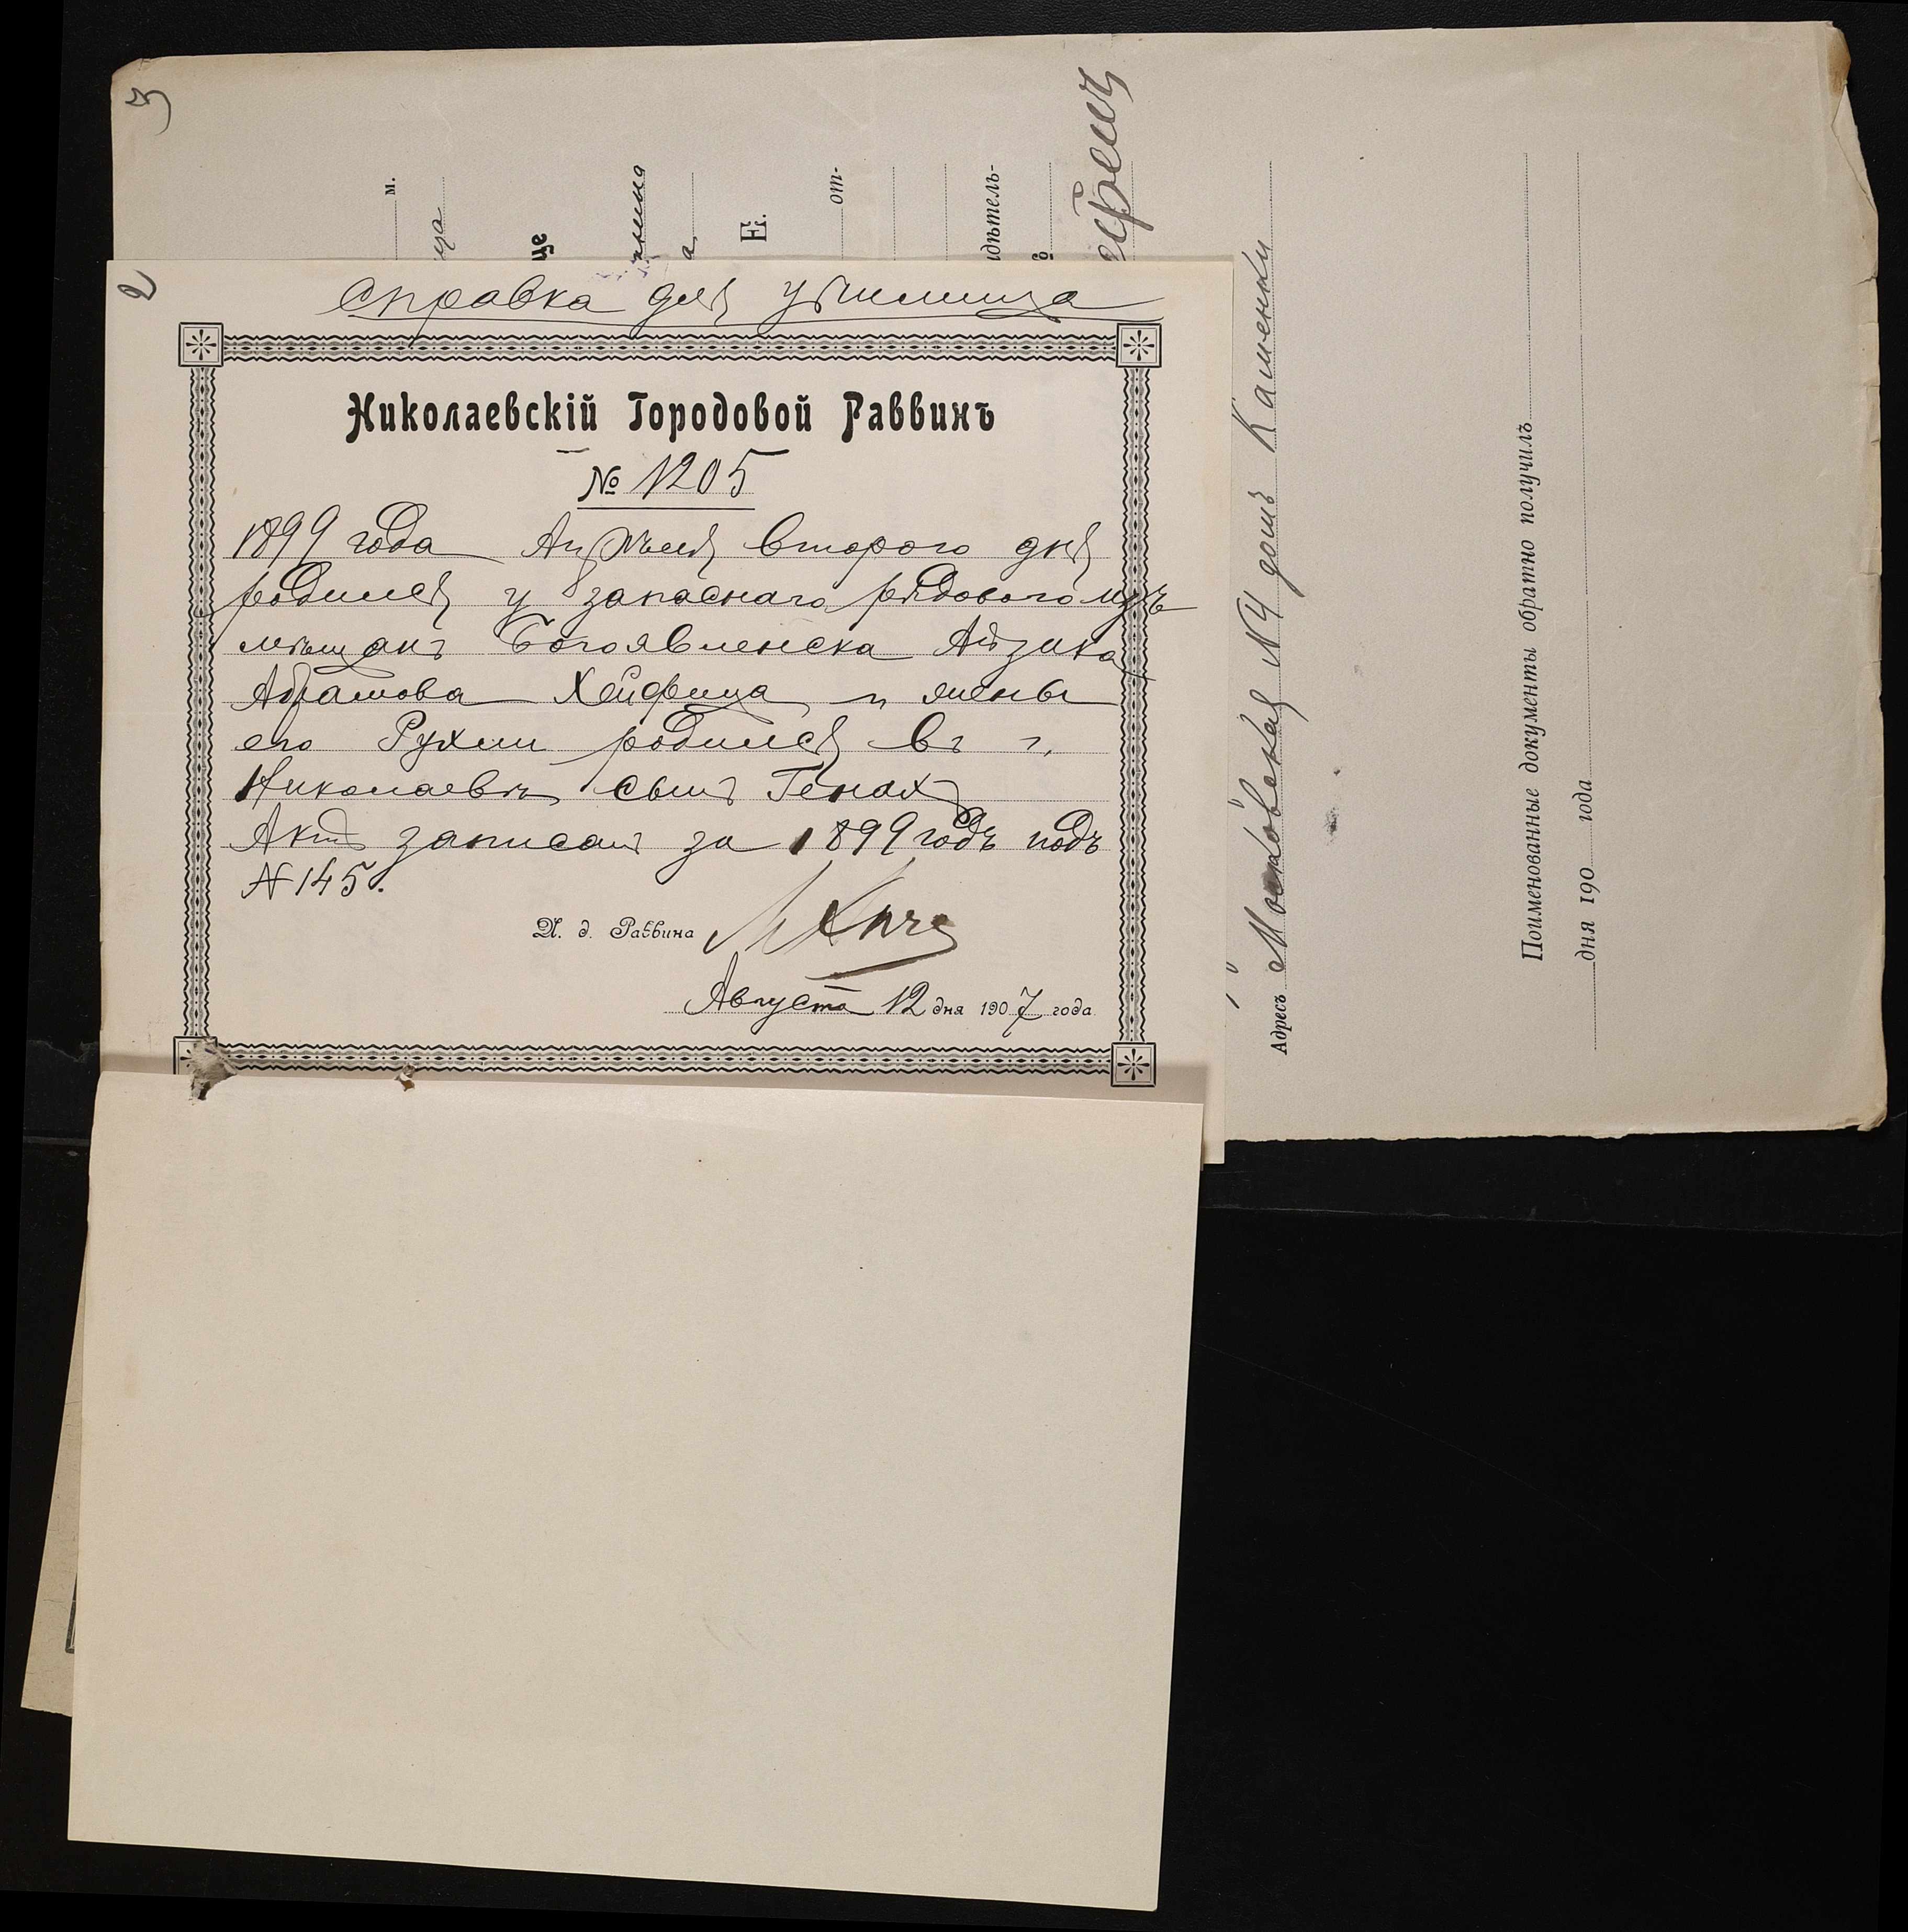 2
Справка для училища
Николаевскій Городовой Раввинъ
№ 1205
1899 года Апрѣля второго дня
родился у запаснаго рядового изъ
мѣщанъ Богоявленска Айзика
Абрамова Хейфеца и жены
его Рухли родился въ г.
Николаевѣ сынъ Генах
Актъ записанъ за 1899 годъ подъ
№ 145.
И. д. Раввина
Августа 12 дня 1907 года
3
м.
ца
це
а
Ѣ.
от-
идѣтель-
Адресъ Московская № 4 домъ Каменки
Поименованные документы обратно получилъ
дня 190 года